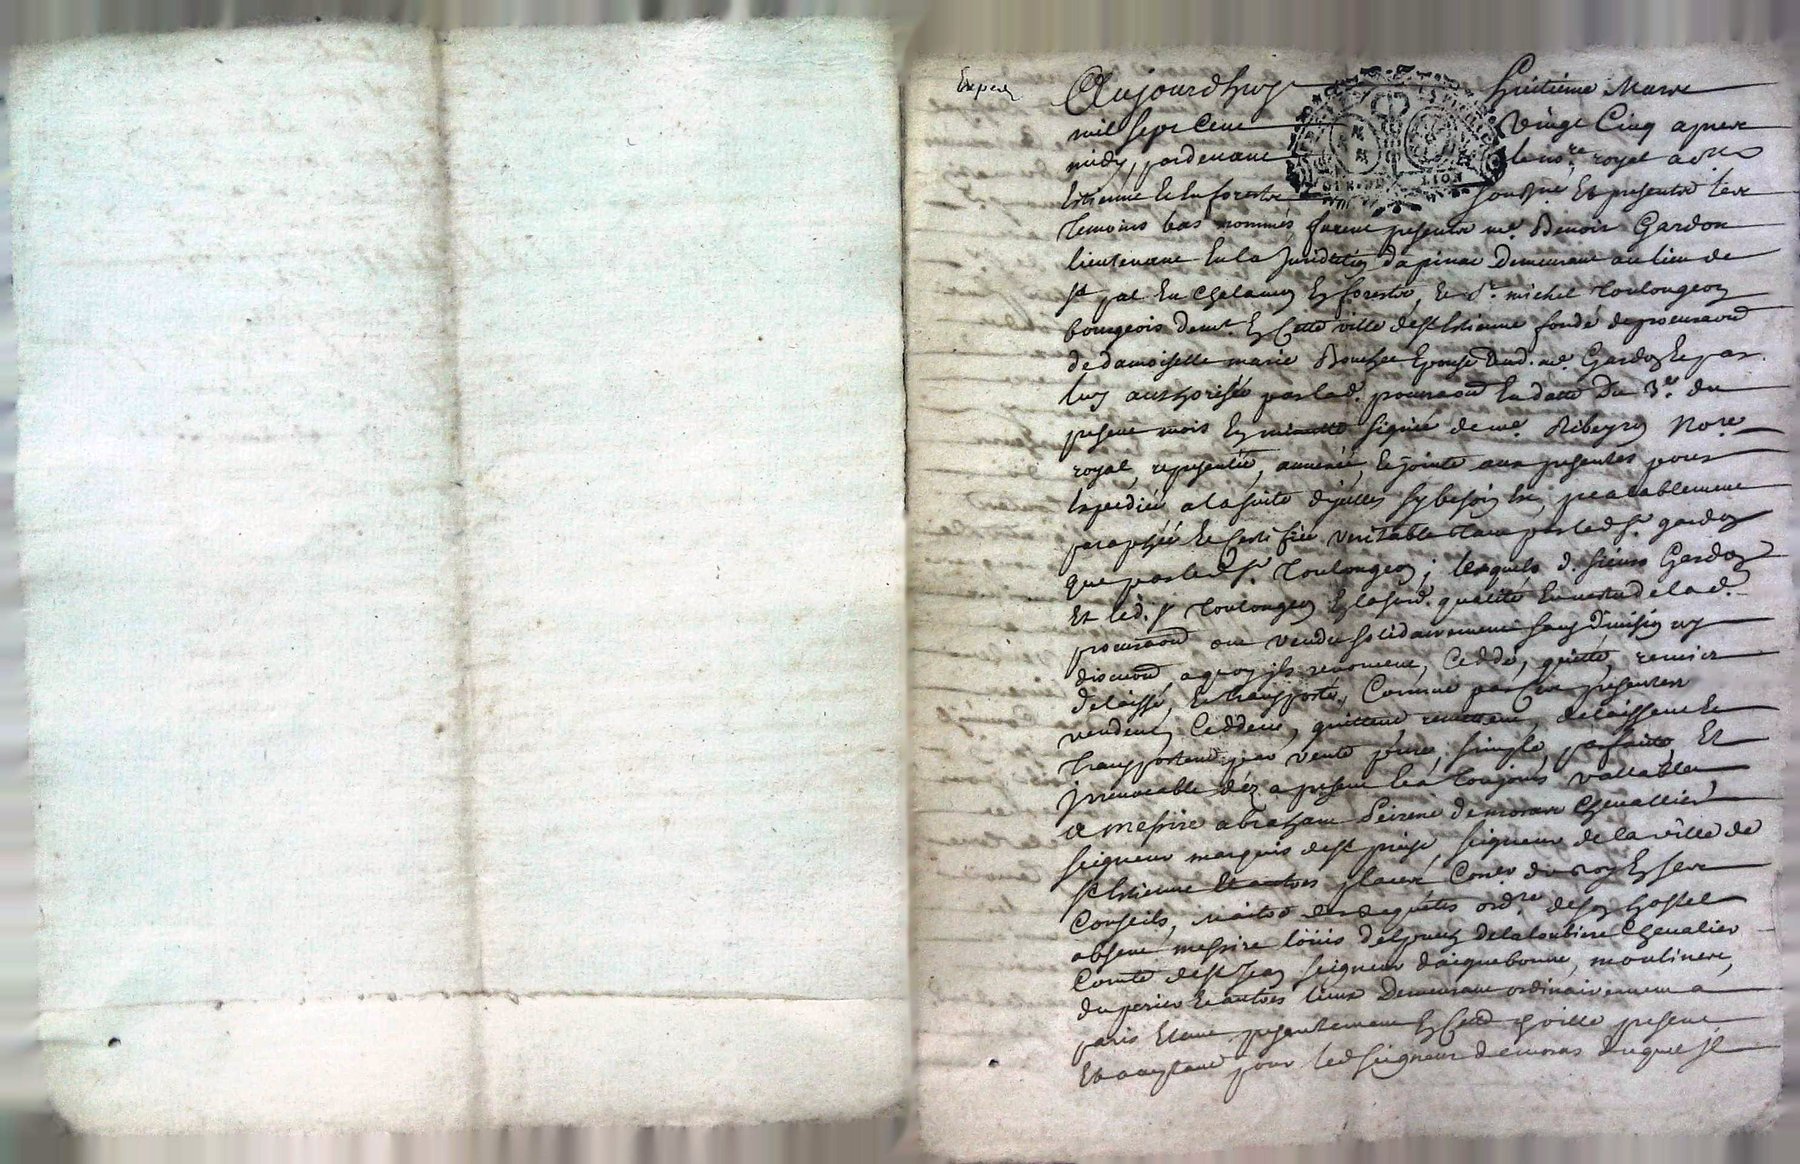 Aujourdhuy huitieme Mars
mil sept cent vingt Cinq apres
midy, pardevant le no.re royal a St
Estienne En forestz soussigné Et presentz les
temoins bas nommés furent presentz me. Benoit Gardon
lieutenant En la Juridition dapinac Demeurant au lieu de
st pal En Chalancon En forestz, Et Sr. michel Toulongeon
bourgeois demt. En Cette ville de st Estienne fondé de procuraon
de damoiselle marie Epouse dud. me. Gardon Et par
luy authorisée par lad. procuraon En datte Du 3.e du
present mois En minutte signée de me. Ribeyron No.re
royal, representée, annexée, Et jointe aux presentes pour
Expediée a la suitte dycelles sy besoin Est, prealablement
paraphée Et certifiée veritable tant par led. sr. gardon
que par led. sr. Toulongeon; lesquels d. sieurs Gardon
Et led. sr Toulongeon En lasusd. qualité En vertu de lad.
procuraon ont vendu solidairement sans division ny
discution, a quoy ils renoncent, Ceddé, quitté, remis
delaissé, Et transporté, Comme par Ces presentes
vendent, Ceddent, quittent remettent, delaissent Et
transportent par vente pure, simple, parfaite, Et
jrrevocable déz a present Et a toujours vallable
a messire abraham Peirenc de moras Chevallier
seigneur marquis de st priest, seigneur de la ville de
st Estienne Et autres places, Coner du roy En ses
Conseils, maitre des requetes ord.re de son hostel
absent messire loüis de la loubiere Chevalier
Comte de st Jean seigneur daiguebonne, moulinere,
du perier Et autres lieux Demeurant ordinairement a
paris Etant presentement En Cette d. ville present
Et acceptant pour led seigneur de moras duquel jl